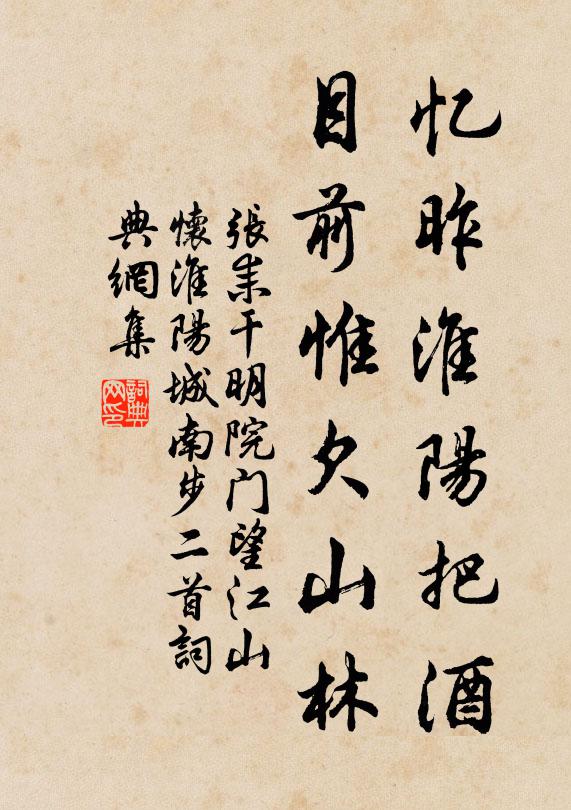 忆昨淮陽把酒
目前惟欠山林
張耒干明院门望江山
懷淮陽城南步二首詞
典網集
詞典网印